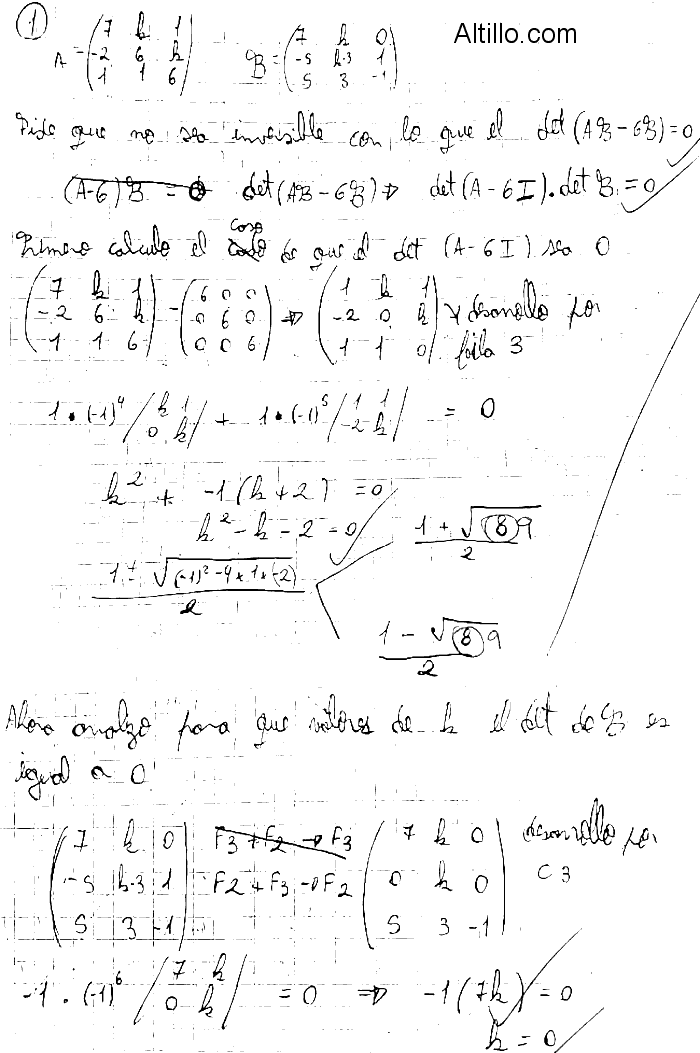 Altillo.com
1
A = (7 k 1 / -2 6 k / 1 1 6) B = (7 k 0 / -5 k-3 1 / 5 3 -1)
Pide que no sea inversible con lo que el det (AB - 6B) = 0
(A-6)B = 0 det (AB - 6B) ⇒ det (A - 6I) . det B = 0
Primero calculo el caso de que el det (A - 6I) sea 0
(7 k 1 / -2 6 k / 1 1 6) - (6 0 0 / 0 6 0 / 0 0 6) ⇒ (1 k 1 / -2 0 k / 1 1 0) y desarrollo por
fila 3
1 • (-1)^4 |k 1 / 0 k| + 1 • (-1)^5 |1 1 / -2 k| = 0
k^2 + -1 (k + 2) = 0
k^2 - k - 2 = 0
1 ± √((-1)^2 - 4 * 1 * (-2)) / 2
1 + √(8) 9 / 2
1 - √(8) 9 / 2
Ahora analizo para que valores de k el det de B es
igual a 0
(7 k 0 / -5 k-3 1 / 5 3 -1) F3 + F2 → F3 F2 + F3 → F2 (7 k 0 / 0 k 0 / 5 3 -1) desarrollo por
C3
-1 . (-1)^6 |7 k / 0 k| = 0 ⇒ -1 (7k) = 0
k = 0